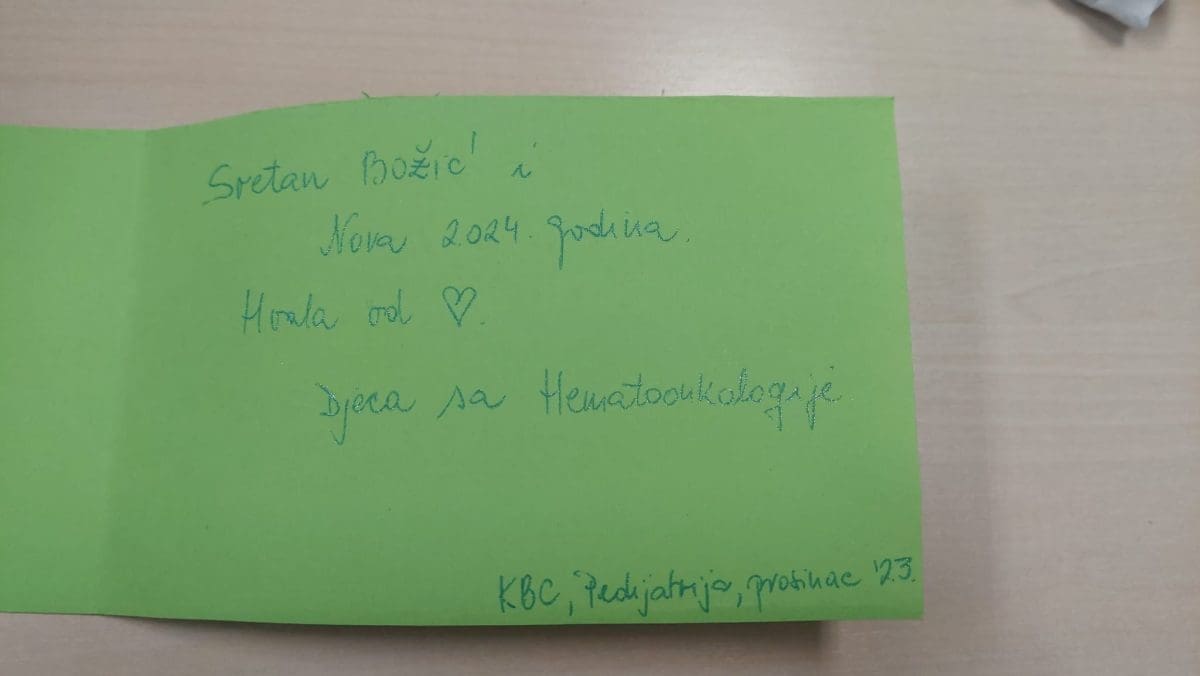 Sretan Božić i
Nova 2024. godina.
Hvala od ♡.
Djeca sa Hematoonkologije
KBC, Pedijatrija, prosinac '23.